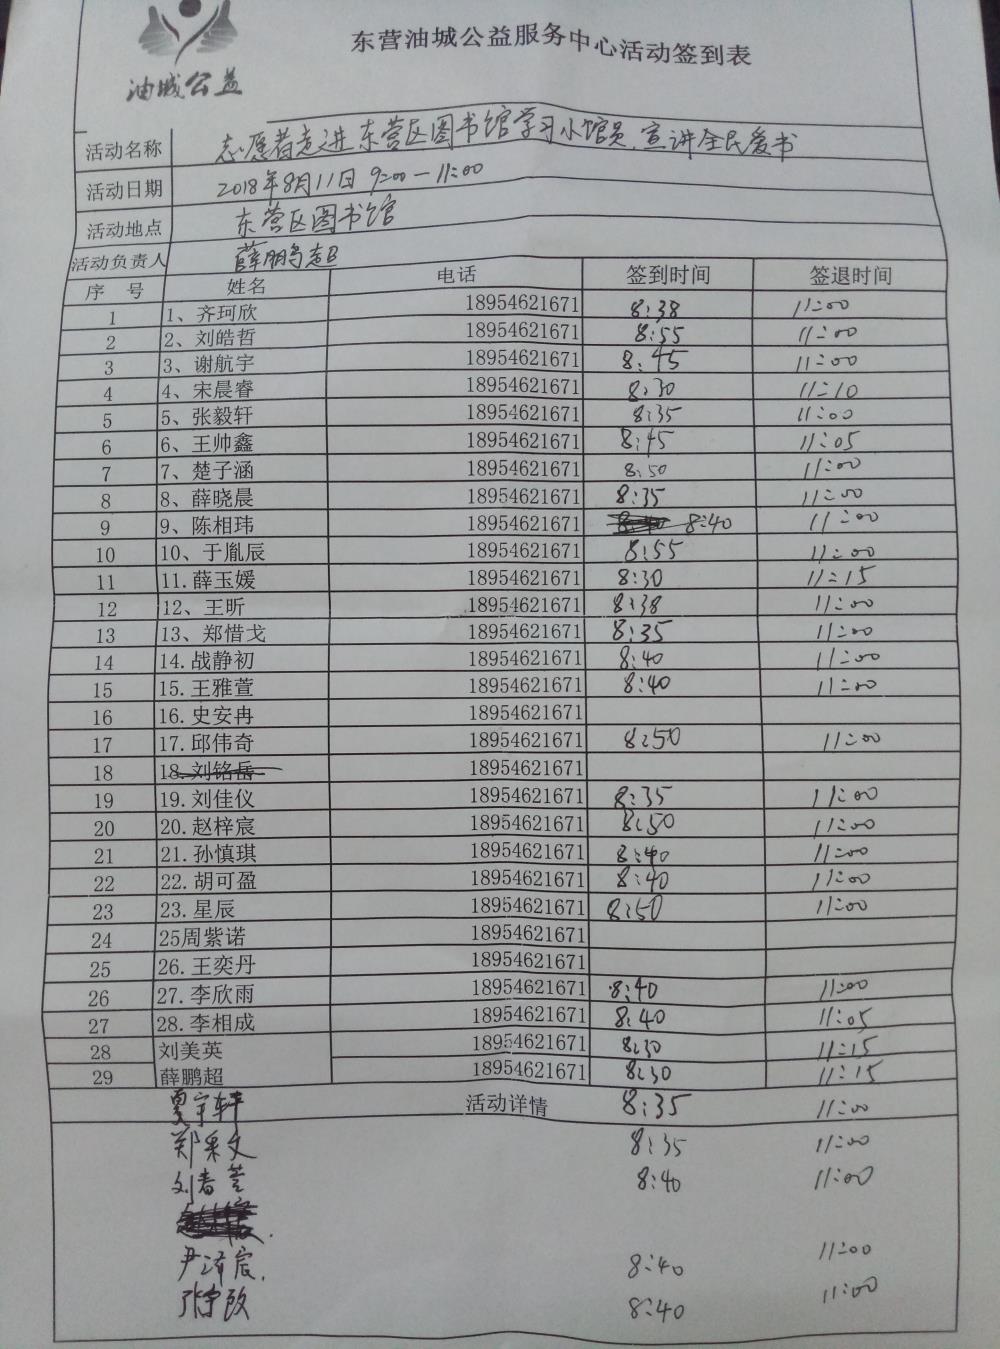 油城公益
东营油城公益服务中心活动签到表
活动名称 志愿者走进东营区图书馆学习小馆员,宣讲全民爱书
活动日期 2018年8月11日 9:00—11:00
活动地点 东营区图书馆
活动负责人 薛鹏超
序 号 姓名 电话 签到时间 签退时间
1 1、齐珂欣 18954621671 8:38 11:00
2 2、刘皓哲 18954621671 8:55 11:00
3 3、谢航宇 18954621671 8:45 11:00
4 4、宋晨睿 18954621671 8:30 11:10
5 5、张毅轩 18954621671 8:35 11:00
6 6、王帅鑫 18954621671 8:45 11:05
7 7、楚子涵 18954621671 8:50 11:00
8 8、薛晓晨 18954621671 8:35 11:00
9 9、陈相玮 18954621671 8:40 11:00
10 10、于胤辰 18954621671 8:55 11:00
11 11.薛玉媛 18954621671 8:30 11:15
12 12、王昕 18954621671 8:38 11:00
13 13、郑惜戈 18954621671 8:35 11:00
14 14.战静初 18954621671 8:40 11:00
15 15.王雅萱 18954621671 8:40 11:00
16 16.史安冉 18954621671
17 17.邱伟奇 18954621671 8:50 11:00
18 18.刘铭岳 18954621671
19 19.刘佳仪 18954621671 8:35 11:00
20 20.赵梓宸 18954621671 8:50 11:00
21 21.孙慎琪 18954621671 8:40 11:00
22 22.胡可盈 18954621671 8:40 11:00
23 23.星辰 18954621671 8:50 11:00
24 25周紫诺 18954621671
25 26.王奕丹 18954621671
26 27.李欣雨 18954621671 8:40 11:00
27 28.李相成 18954621671 8:40 11:05
28 刘美英 18954621671 8:30 11:15
29 薛鹏超 18954621671 8:30 11:15
夏宇轩 活动详情 8:35 11:00
郑采文 8:35 11:00
刘春 8:40 11:00
尹泽宸. 8:40 11:00
张 8:40 11:00